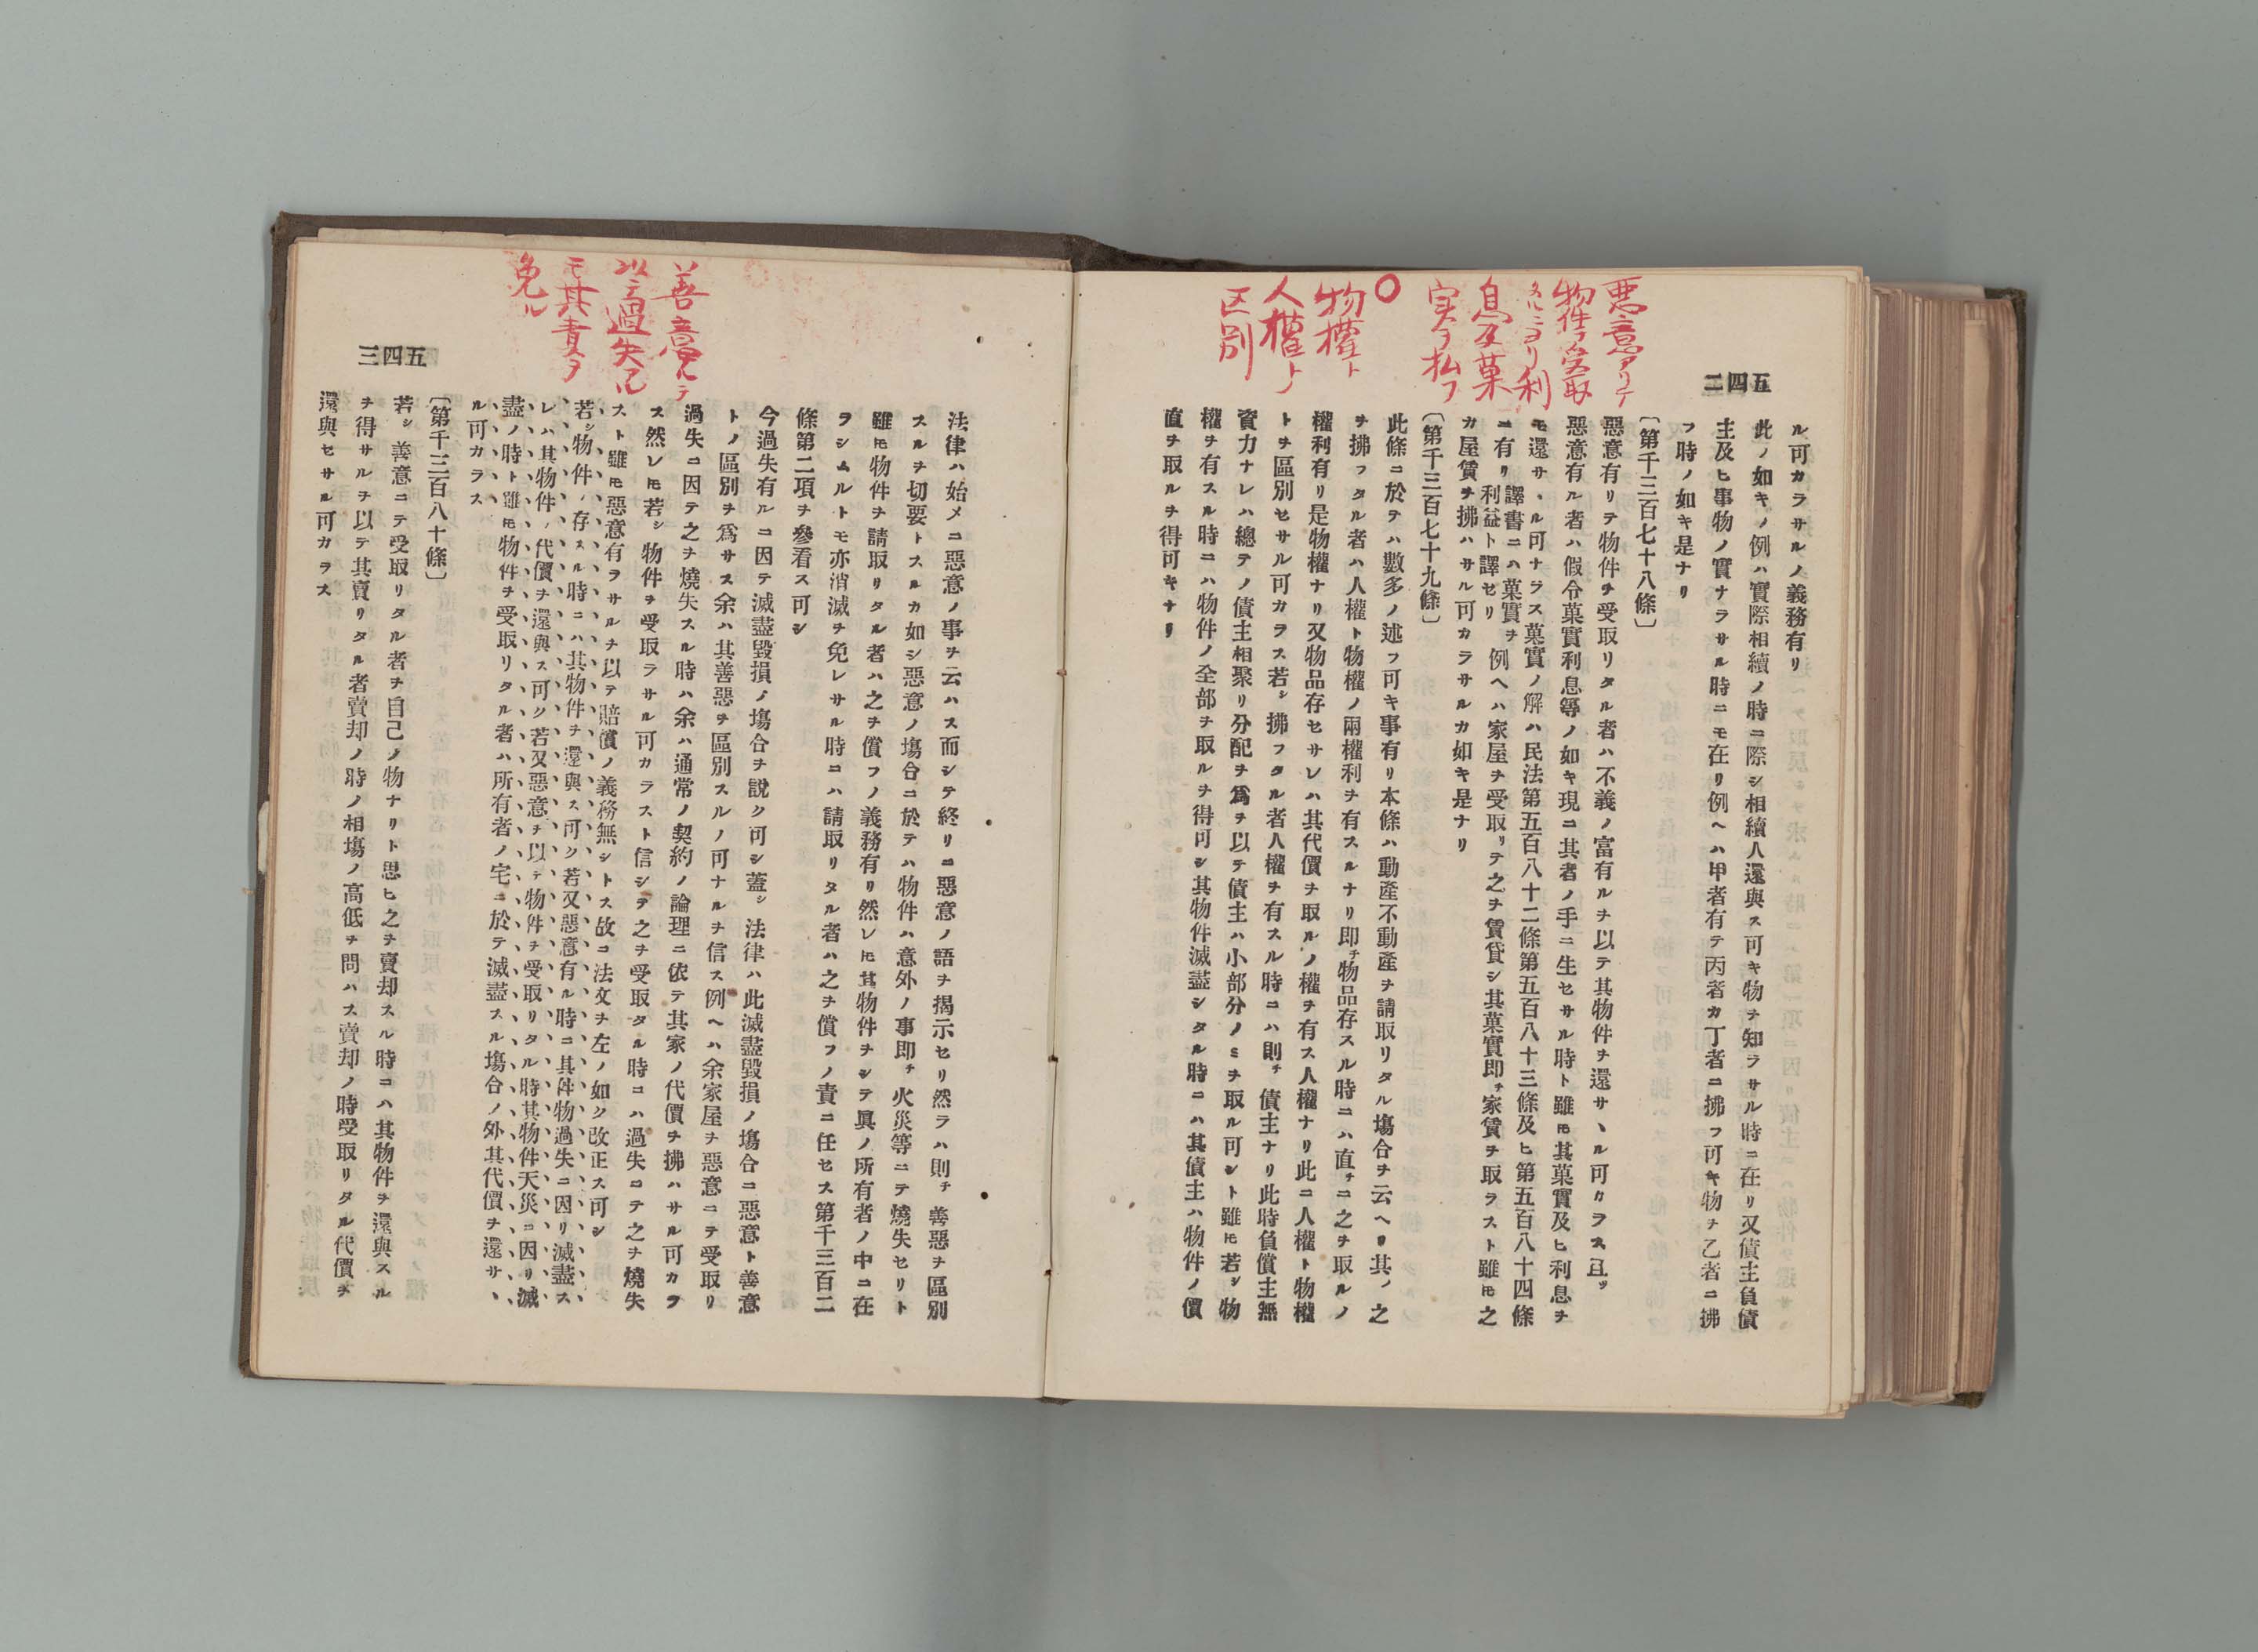 悪意アリテ
物件ヲ受取
タルニヨリ利
息及菓
実ヲ払フ
○
物權ト
人權トノ
区別
二四五
ル可カラサルノ義務有リ
此ノ如キノ例ハ實際相續ノ時ニ際シ相續人還與ス可キ物ヲ知ラサル時ニ在リ又債主負債
主及ヒ事物ノ實ナラサル時ニモ在リ例ヘハ甲者有テ丙者カ丁者ニ拂フ可キ物ヲ乙者ニ拂
フ時ノ如キ是ナリ
〔第千三百七十八條〕
惡意有リテ物件ヲ受取リタル者ハ不義ノ富有ルヲ以テ其物件ヲ還サヽル可カラス且ツ
惡意有ル者ハ假令菓實利息等ノ如キ現ニ其者ノ手ニ生セサル時ト雖𪜈其菓實及ヒ利息ヲ
モ還サヽル可ナラス菓實ノ解ハ民法第五百八十二條第五百八十三條及ヒ第五百八十四條
ニ有リ譯書ニハ菓實ヲ利益ト譯セリ例ヘハ家屋ヲ受取リテ之ヲ賃貸シ其菓實即チ家賃ヲ取ラスト雖𪜈之
カ屋賃ヲ拂ハサル可カラサルカ如キ是ナリ
〔第千三百七十九條〕
此條ニ於テハ數多ノ述フ可キ事有リ本條ハ動產不動產ヲ請取リタル塲合ヲ云ヘリ其ノ之
ヲ拂フタル者ハ人權ト物權ノ兩權利ヲ有スルナリ即チ物品存スル時ニハ直チニ之ヲ取ルノ
權利有リ是物權ナリ又物品存セサレハ其代價ヲ取ルノ權ヲ有ス人權ナリ此ニ人權ト物權
トヲ區別セサル可カラス若シ拂フタル者人權ヲ有スル時ニハ則チ債主ナリ此時負償主無
資力ナレハ總テノ債主相聚リ分配ヲ爲ヲ以テ債主ハ小部分ノミヲ取ル可シト雖𪜈若シ物
權ヲ有スル時ニハ物件ノ全部ヲ取ルヲ得可シ其物件滅盡シタル時ニハ其債主ハ物件ノ價
直ヲ取ルヲ得可キナリ
善意ニテ
以テ過失
モ其責ヲ
免ル
三四五
法律ハ始メニ惡意ノ事ヲ云ハス而シテ終リニ惡意ノ語ヲ揭示セリ然ラハ則チ善惡ヲ區別
スルヲ切要トスルカ如シ惡意ノ塲合ニ於テハ物件ハ意外ノ事即チ火災等ニテ燒失セリト
雖𪜈物件ヲ請取リタル者ハ之ヲ償フノ義務有リ然レ𪜈其物件ヲシテ眞ノ所有者ノ中ニ在
ラシムルトモ亦消滅ヲ免レサル時ニハ請取リタル者ハ之ヲ償フノ責ニ任セス第千三百二
條第二項ヲ參看ス可シ
今過失有ルニ因テ滅盡毀損ノ塲合ヲ說ク可シ蓋シ法律ハ此滅盡毀損ノ塲合ニ惡意ト善意
トノ區別ヲ爲サス余ハ其善惡ヲ區別スルノ可ナルヲ信ス例ヘハ余家屋ヲ惡意ニテ受取リ
過失ニ因テ之ヲ燒失スル時ハ余ハ通常ノ契約ノ論理ニ依テ其家ノ代價ヲ拂ハサル可カラ
ス然レ𪜈若シ物件ヲ受取ラサル可カラスト信シテ之ヲ受取タル時ニハ過失ニテ之ヲ燒失
スト雖𪜈惡意有ラサルヲ以テ賠償ノ義務無シトス故ニ法文ヲ左ノ如ク改正ス可シ
若シ物件ノ存スル時ニハ其物件ヲ還與ス可シ若又惡意有ル時ニ其件物過失ニ因リ滅盡ス
レハ其物件ノ代價ヲ還與ス可ク若又惡意ヲ以テ物件ヲ受取リタル時其物件天災ニ因リ滅
盡ノ時ト雖𪜈物件ヲ受取リタル者ハ所有者ノ宅ニ於テ滅盡スル塲合ノ外其代價ヲ還サヽ
ル可カラス
〔第千三百八十條〕
若シ善意ニテ受取リタル者ヲ自己ノ物ナリト思ヒ之ヲ賣却スル時ニハ其物件ヲ還與スル
ヲ得サルヲ以テ其賣リタル者賣却ノ時ノ相塲ノ高低ヲ問ハス賣却ノ時受取リタル代價ヲ
還與セサル可カラス